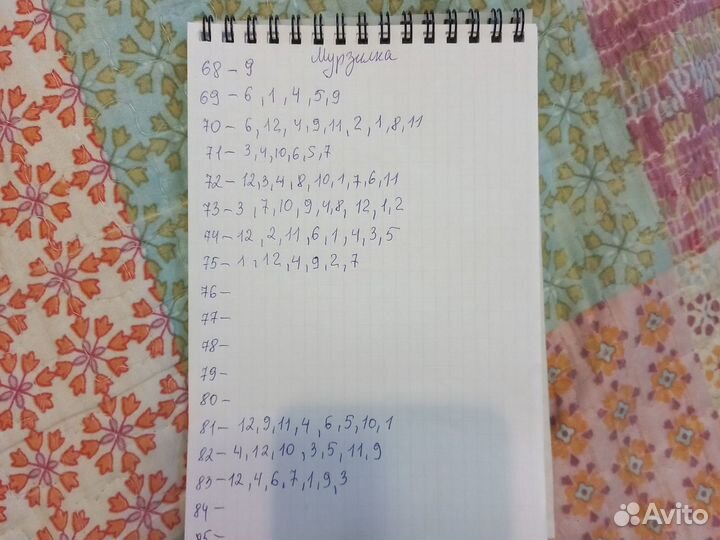 Мурзилка
68 – 9
69 – 6, 1, 4, 5, 9
70 – 6, 12, 4, 9, 11, 2, 1, 8, 11
71 – 3, 4, 10, 6, 5, 7
72 – 12, 3, 4, 8, 10, 1, 7, 6, 11
73 – 3, 7, 10, 9, 4, 8, 12, 1, 2
74 – 12, 2, 11, 6, 1, 4, 3, 5
75 – 1, 12, 4, 9, 2, 7
76 –
77 –
78 –
79 –
80 –
81 – 12, 9, 11, 4, 6, 5, 10, 1
82 – 4, 12, 10, 3, 5, 11, 9
83 – 12, 4, 6, 7, 1, 9, 3
84 –
85 –
Avito